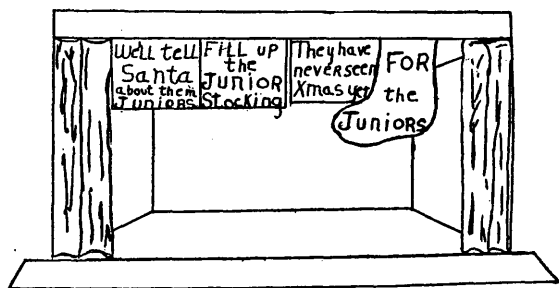 We'll tell
Santa
about them
JUNIORS
FILL UP
the
JUNIOR
Stocking
They have
never seen
Xmas yet
FOR
the
JUNIORS